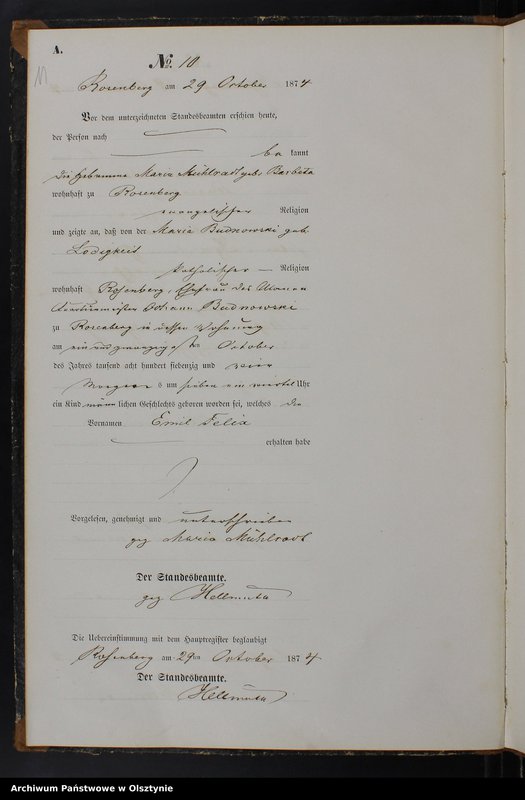 A.
No. 10
11
Rosenberg am 29 October 1874
Vor dem unterzeichneten Standesbeamten erschien heute,
der Person nach
be kannt
die Hebamme Maria Mühlradt geb. Barbeta
wohnhaft zu Rosenberg
evangelischer Religion
und zeigte an, daß von der Maria Budnowski geb.
Lodigkeit
katholischer Religion
wohnhaft Rosenberg, Ehefrau des Ulanen
Budnowski
zu Rosenberg in dessen Wohnung
am ein und zwanzigsten October
des Jahres tausend acht hundert siebenzig und vier
Morgens um sieben ein viertel Uhr
ein Kind männlichen Geschlechts geboren worden sei, welches die
Vornamen Emil Felix
erhalten habe
Vorgelesen, genehmigt und unterschrieben
gez Maria Mühlradt
Der Standesbeamte.
gez Hellmuth
Die Uebereinstimmung mit dem Hauptregister beglaubigt
Rosenberg am 29ten October 1874
Der Standesbeamte.
Hellmuth
Archiwum Państwowe w Olsztynie